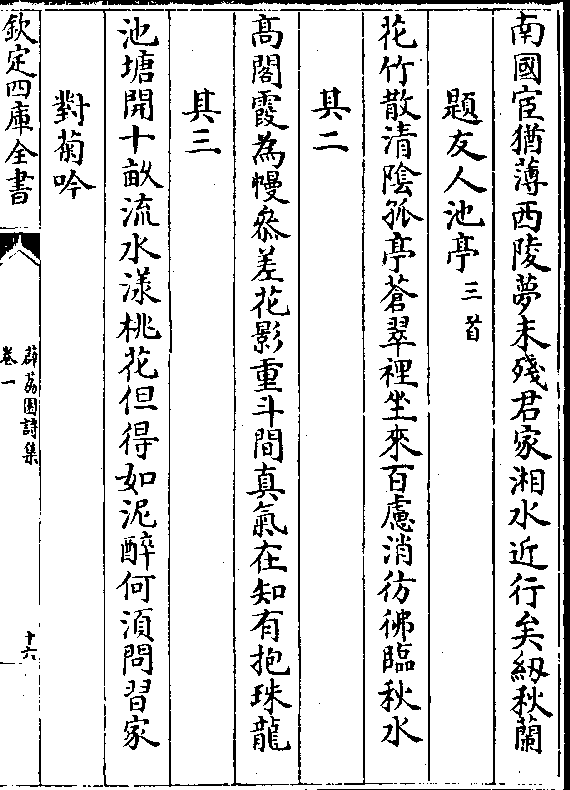 南國宦猶薄西陵夢未殘君家湘水近行矣紉秋蘭
題友人池亭三首
花竹散清陰孤亭蒼翠裡坐來百慮消彷彿臨秋水
其二
髙閣霞為幔叅差花影重斗間真氣在知有抱珠龍
其三
池塘開十畝流水漾桃花但得如泥醉何須問習家
對菊吟
欽定四庫全書
薜荔園詩集
卷一
十六